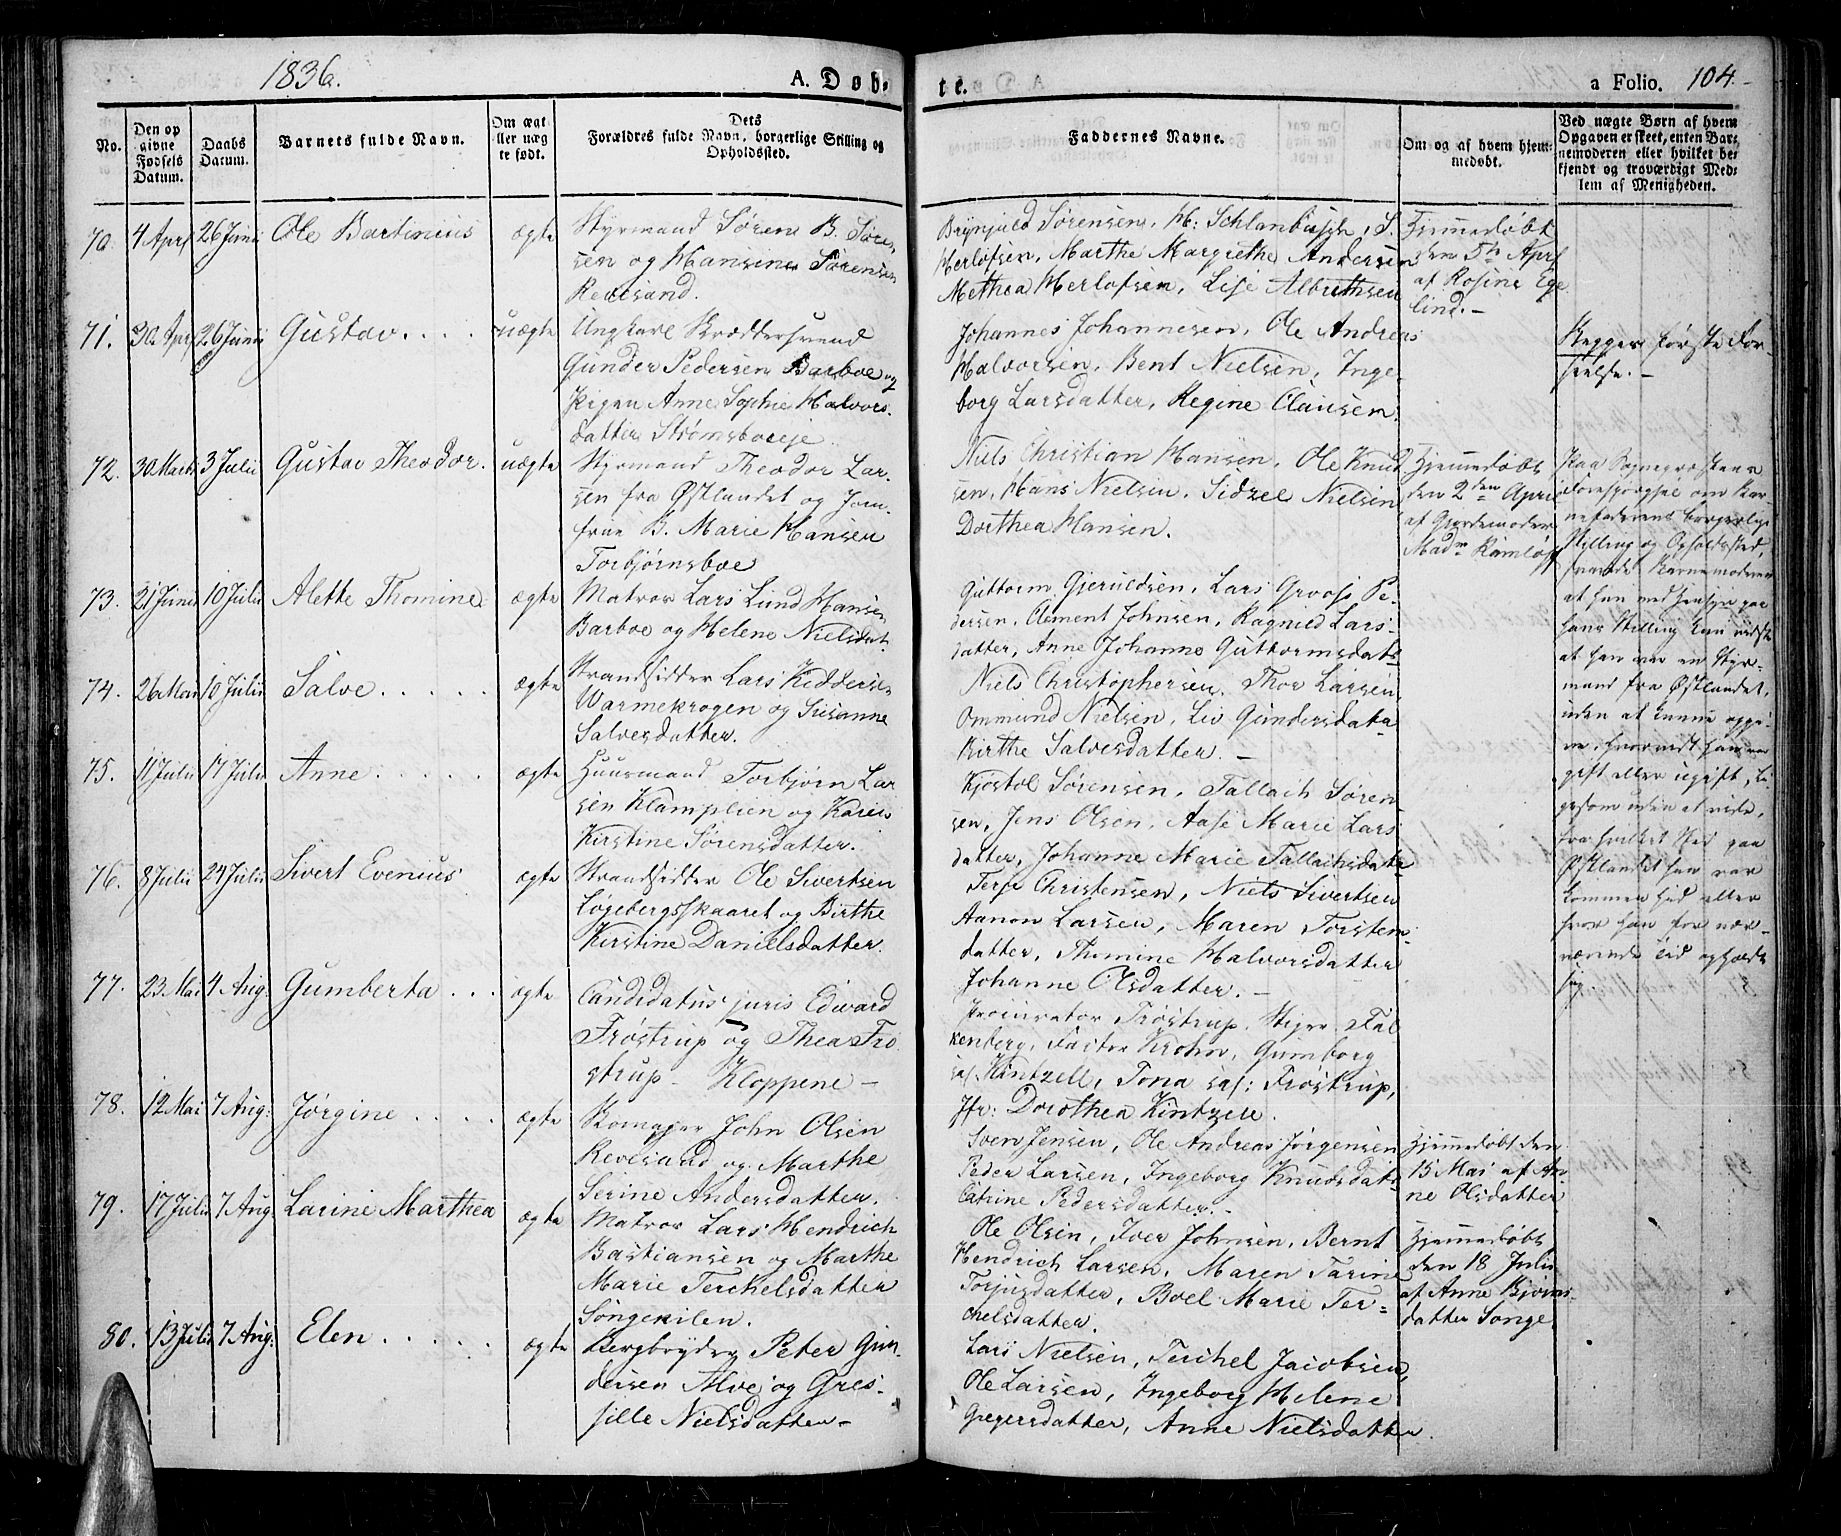 1836.
A. Døb-
te.
a Folio. 104.
No.
Den op
givne
Fødsels
Datum.
Daabs
Datum.
Barnets fulde Navn.
Om ægt
eller uæg
te født.
Dets
Forældres fulde Navn, borgerlige Stilling og
Opholdssted.
Faddernes Navne.
Om og af hvem hjem-
medøbt.
Ved uægte Børn af hvem
Opgaven er skeet, enten Bar-
nemoderen eller hvilket be-
kjendt og troværdigt Med-
lem af Menigheden.
70. 4 Apr 26 Juni Ole Bartinius ægte
Styrmand Søren B. Søren-
sen og Hansine Sørensen
Revesand.
Brynjuld Sørensen, H: Schlanbusch, S.
Herlofsen, Marthe Margrethe Andersen
Methea Herlofsen, Lise Albrethsen
Hjemmedøbt
den 5te Apr
af Rosine Ege
lind.-
71. 30 Apr 26 Juni Gustav.... uægte
Ungkarl Skræddersvend
Gunder Pedersen Barboe og
Pigen Anne Sophie Halvors-
datter Strømsboeeje
Johannes Johannesen, Ole Andreas
Halvorsen, Bent Nielsen, Inge-
borg Larsdatter, Regine Clausen.
Begges første For-
seelse.-
72. 30 Marts 3 Julii Gustav Theodor. uægte
Styrmand Theodor Lar-
sen fra Østlandet og Jom-
frue B. Marie Hansen
Torbjørnsboe
Niels Christian Hansen, Ole Knud
sen, Hans Nielsen, Sidzel Nielsen
Dorthea Hansen.
Hjemmedøbt
den 2den April
af Gjordemoder
Madm Rømløff
Paa Sognepræstens
Forespørgsel om Bar-
nefaderens borgerlige
Stilling og Opholdssted,
svarede Barnemoderen
at hun med Hensyn paa
hans Stilling kun vidste
at han var en Styr-
mand fra Østlandet,
uden at kunne opgi-
ve, hvorvidt han var
gift eller ugift, li-
gesom uden at vide,
fra hvilket Sted paa
Østlandet han var
kommen hid eller
hvor han for nær-
værende Tid opholdt
sig.
73. 21 Juni 10 Julii Alette Thomine ægte
Matros Lars Lund Hansen
Barboe og Helene Nielsdat
Guttorm Gjeruldsen, Lars Groos Pe-
dersen, Clement Johnsen, Ragnild Lars-
datter, Anne Johanne Guttormsdat
74. 26 Mai 10 Julii Salve..... ægte
Strandsidder Lars Kiddersen
Warmekrogen og Susanne
Salvesdatter.
Niels Christophersen, Thor Larsen
Ommund Nielsen, Liv Gundersdata
Birthe Salvesdatter.-
75. 11 Julii 17 Julii Anne..... ægte
Huusmand Torbjørn Lar
sen Klamplien og Karen
Kirstine Sørensdatter.
Kjøstol Sørensen, Tallach Søren-
sen, Jens Olsen, Aase Marie Lars
datter, Johanne Marie Tallachsdate
76. 8 Julii 24 Julii Sivert Evenius ægte
Strandsidder Ole Sivertsen
Løgebergsskaaret og Birthe
Kirstine Danielsdatter
Terje Christensen, Niels Sivertsen
Aanon Larsen, Maren Torstens-
datter, Thomine Halvorsdatter
Johanne Olsdatter.-
77. 23 Mai 4 Aug. Gumberta... ægte
Candidatus juris Edward
Frøstrup og Thea Frø
strup - Kloppene-
Procurator Frøstrup, Stiger Fal
kenberg, Factor Krohn, Gumborg
sal. Kintzell, Tona sal: Frøstrup,
Jfr: Dorothea Kintzell.
78. 12 Mai 7 Aug: Jørgine.... ægte
Skomager John Olsen
Revesand og Marthe
Serine Andersdatter.
Sven Jensen, Ole Andreas Jørgensen
Peder Larsen, Ingeborg Knudsdat
Catrine Pedersdatter.-
Hjemmedøbt den
15 Mai af An-
ne Olsdatter
79. 17 Julii 7 Aug: Larine Marthea ægte
Matros Lars Hendrich
Bastiansen og Marthe
Marie Terkelsdatter
Songekilen.
Ole Olsen, Iver Johnsen, Bernt
Hendrich Larsen, Maren Tarine
Torjusdatter, Boel Marie Ter-
chelsdatter.
Hjemmedøbt
den 18 Julii
af Anne Bjørns-
datter Songe
80. 13 Julii 7 Aug: Elen..... ægte
Bergbryder Peter Gun-
dersen Alve og Gres-
sille Nielsdatter-
Lars Nielsen, Terchel Jacobsen,
Ole Larsen, Ingeborg Helene
Gregersdatter, Anne Nielsdatter.